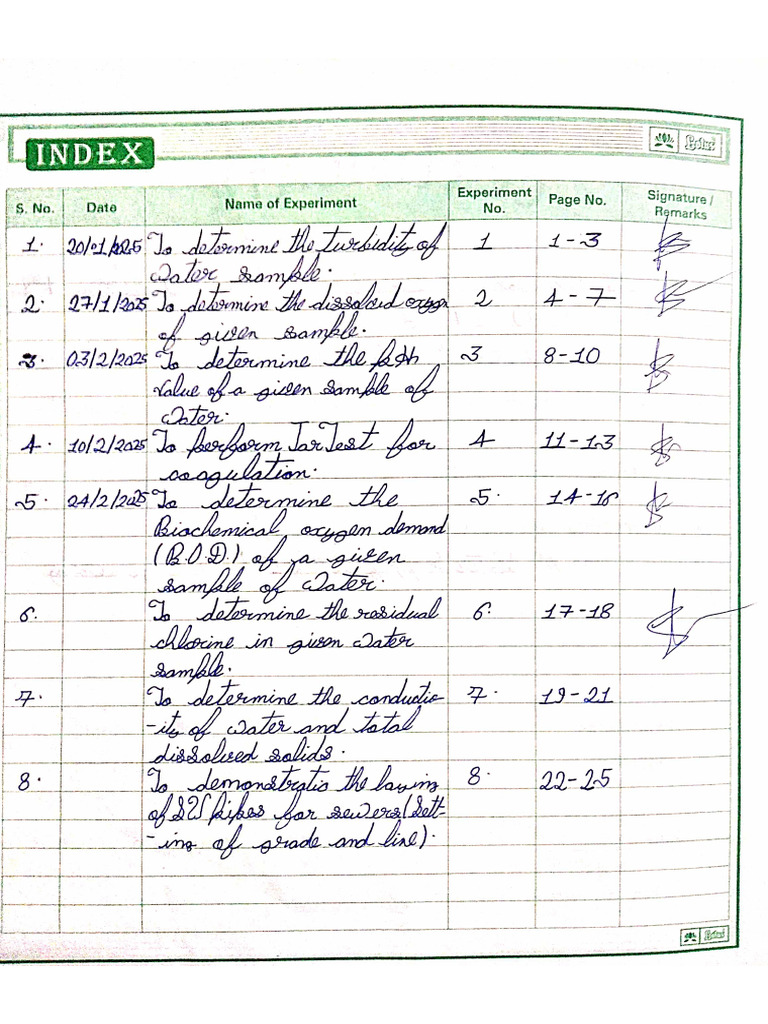 INDEX
S. No. Date Name of Experiment Experiment No. Page No. Signature / Remarks
1. 20/01/2025 To determine the turbidity of 1 1-3
water sample.
2. 27/1/2025 To determine the dissolved oxygen 2 4-7
of given sample.
3. 03/2/2025 To determine the pH 3 8-10
value of a given sample of
water.
4. 10/2/2025 To perform Jar Test for 4 11-13
coagulation.
5. 24/2/2025 To determine the 5. 14-16
Biochemical oxygen demand
(B.O.D.) of a given
sample of water.
6. To determine the residual 6. 17-18
chlorine in given water
sample.
7. To determine the conductiv- 7. 19-21
-ity of water and total
dissolved solids.
8. To demonstratio the laying 8. 22-25
of SW pipes for sewers (Sett-
-ing of grade and line).